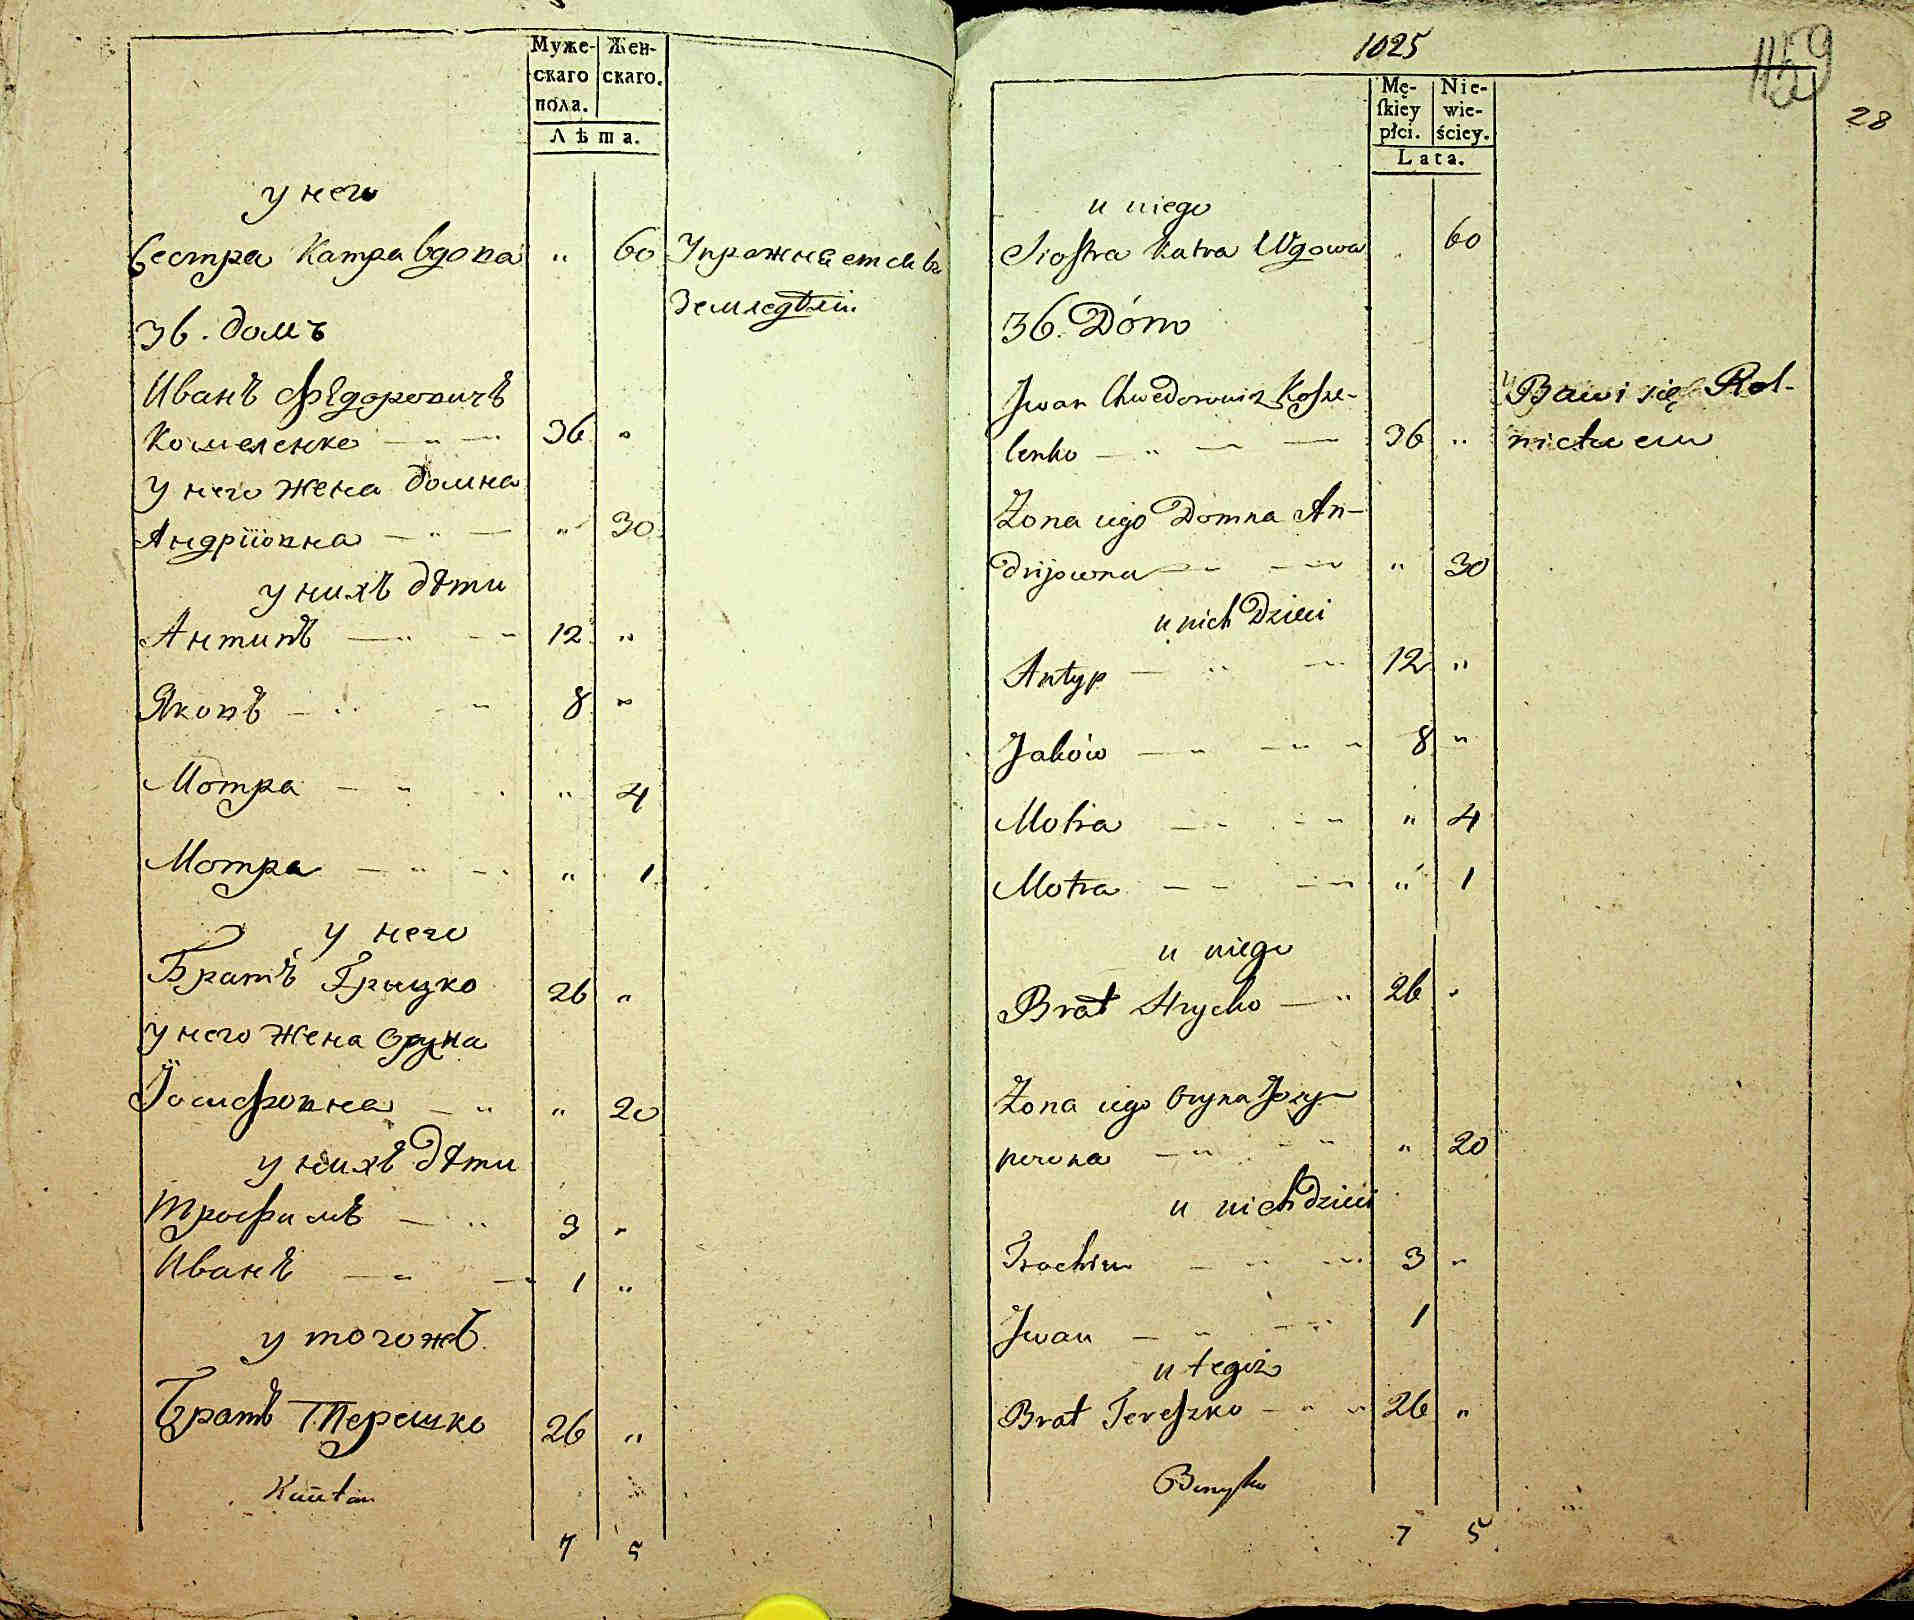 Муже-
скаго
пола.
Жен-
скаго.
Лѣта.
у него
Сестра Катра вдова " 60 Упражняется въ
Земледѣлїи
36. домъ
Иванъ Федоровичъ
Кошеленко 36 "
у него жена Домна
Андрїовна " 30
у нихъ дѣти
Антипъ 12 "
Яковъ 8 "
Мотра " 4
Мотра " 1
у него
Братъ Грыцко 26 "
у него жена Орына
Їосифовна " 20
у нихъ дѣти
Трофимъ 3 "
Иванъ 1 "
у тогожъ
Братъ Терешко 26 "
7 5
1025
1159
28
Mę-
ſkiey
płci.
Nie-
wie-
ściey.
Lata.
u niego
Siostra Katra Wdowa 60
36. Dóm
Jwan Chwedorowicz Kosze-
lenko 36 "
Bawi się Rol-
nictwem
Żona iego Domna An-
drijowna " 30
u nich Dzieci
Antyp 12 "
Jaków 8 "
Motra " 4
Motra " 1
u niego
Brat Hrycko 26 "
Żona iego Oryna Jozy-
powna " 20
u nich dzieci
Trochim 3 "
Jwan 1
u tegoż
Brat Tereszko 26 "
7 5